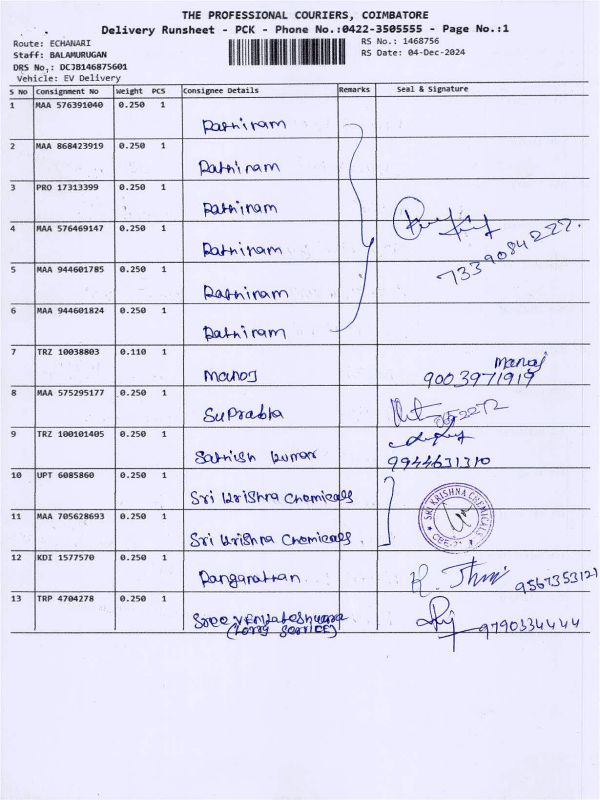 THE PROFESSIONAL COURIERS, COIMBATORE
Delivery Runsheet - PCK - Phone No.:0422-3505555 - Page No.:1
Route: ECHANARI
RS No.: 1468756
Staff: BALAMURUGAN
RS Date: 04-Dec-2024
DRS No.: DCJB146875601
Vehicle: EV Delivery
S No Consignment No Weight PCS Consignee Details Remarks Seal & Signature
1 MAA 576391040 0.250 1
Rathiram
2 MAA 868423919 0.250 1
Rathiram
3 PRO 17313399 0.250 1
Rathiram
4 MAA 576469147 0.250 1
Rathiram
7339084222.
5 MAA 944601785 0.250 1
Rathiram
6 MAA 944601824 0.250 1
Rathiram
7 TRZ 10038803 0.110 1
Manoj
Manoj
9003971919
8 MAA 575295177 0.250 1
SuPrabha
9 TRZ 100101405 0.250 1
Sathish kumar
9944631310
10 UPT 6085860 0.250 1
Sri krishna chemicals
SRI KRISHNA CHEMICALS
11 MAA 705628693 0.250 1
Sri krishna chemicals
12 KDI 1577570 0.250 1
9567353121
13 TRP 4704278 0.250 1
Sree venkateshwara
(Lorry Service)
9790334444